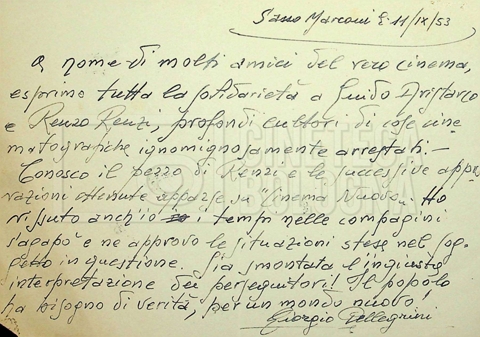 Sasso Marconi li 11/IX/53
a nome di molti amici del vero cinema,
esprimo tutta la solidarietà a Guido Aristarco
e Renzo Renzi, profondi cultori di cose cine
matografiche ignomignosamente arrestati.-
Conosco il pezzo di Renzi e le successive appro
vazioni ottenute apparse su "Cinema Nuovo". Ho
vissuto anch'io i tempi nelle compagini
s'agapò e ne approvo le situazioni stese nel sog
getto in questione. Sia smontata l'ingiusta
interpretazione dei persecutori! Il popolo
ha bisogno di verità, per un mondo nuovo!
Giorgio Pellegrini
CINETECA
BOLOGNA